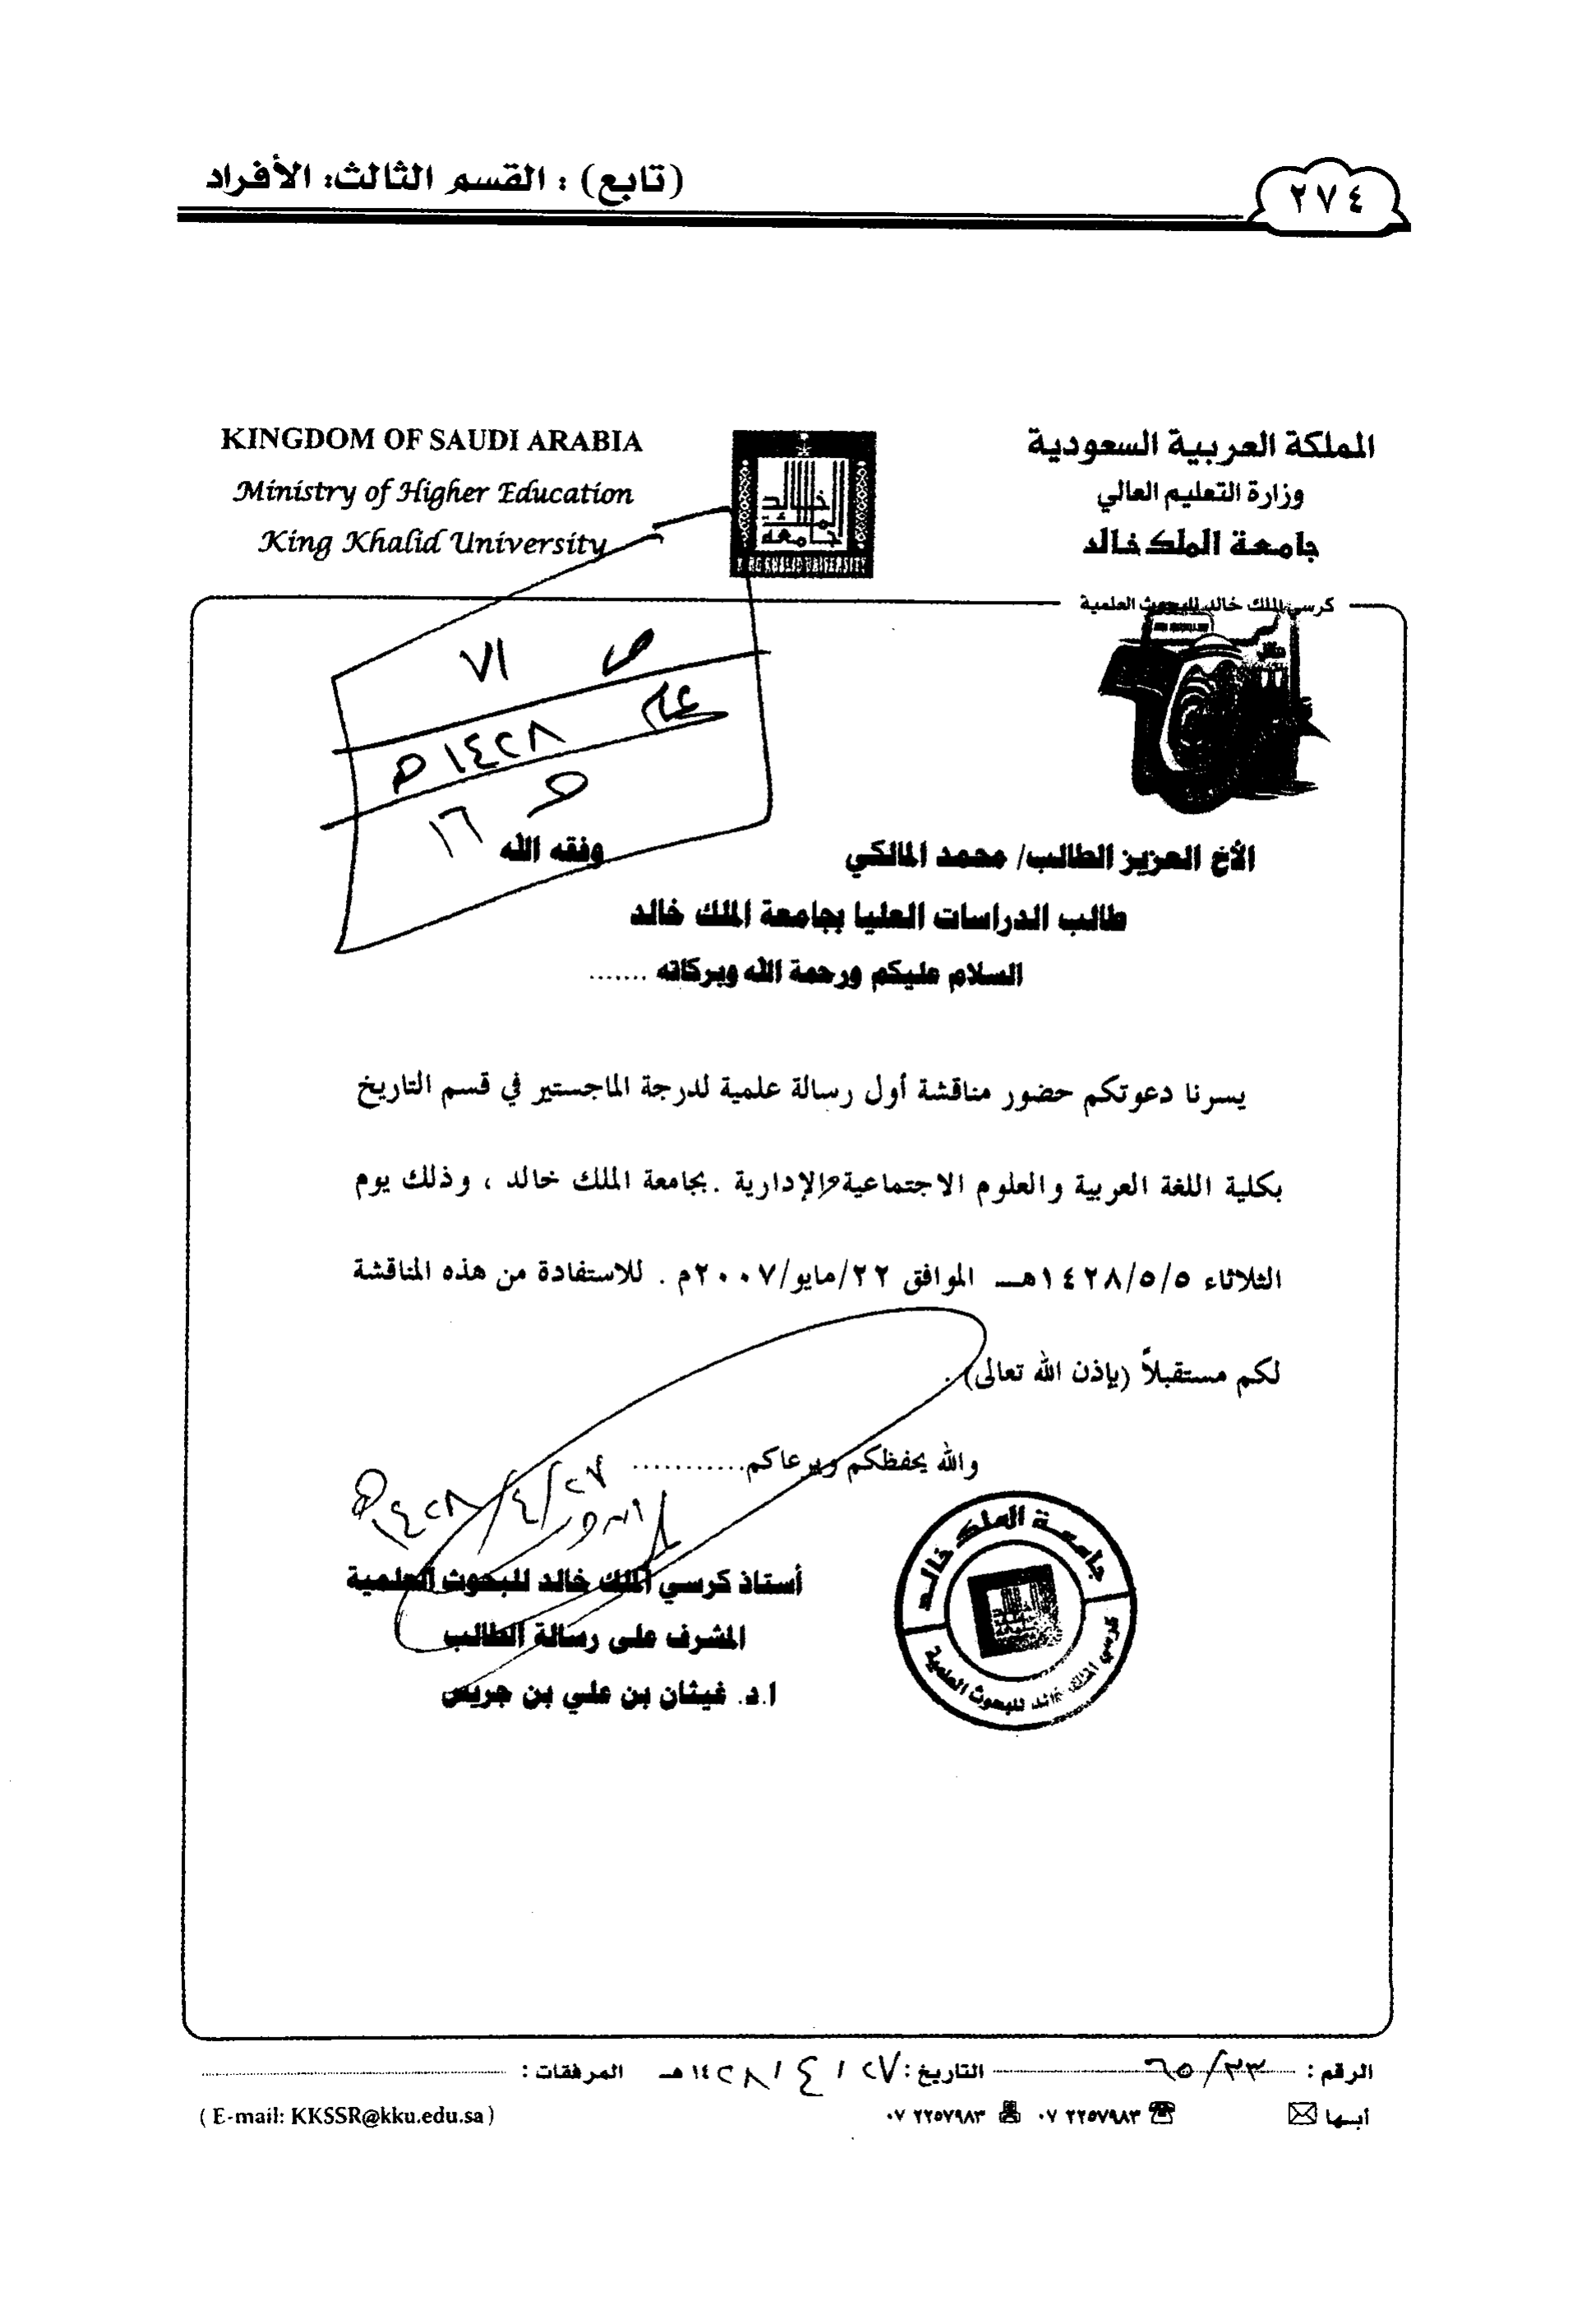 (تابع) : القسم الثالث: الأفراد
٢٧٤
KINGDOM OF SAUDI ARABIA
Ministry of Higher Education
King Khalid University
المملكة العربية السعودية
وزارة التعليم العالي
جامعة الملك خالد
KING KHALID UNIVERSITY
كرسي الملك خالد للبحوث العلمية
ص ٧١
١٤٢٨ هـ
١٦
الأخ العزيز الطالب/ محمد المالكي وفقه الله
طالب الدراسات العليا بجامعة الملك خالد
السلام عليكم ورحمة الله وبركاته .......
يسرنا دعوتكم حضور مناقشة أول رسالة علمية لدرجة الماجستير في قسم التاريخ
بكلية اللغة العربية والعلوم الاجتماعية والإدارية . بجامعة الملك خالد ، وذلك يوم
الثلاثاء ١٤٢٨/٥/٥هـــ الموافق ٢٢/مايو/٢٠٠٧م . للاستفادة من هذه المناقشة
لكم مستقبلاً (بإذن الله تعالى) .
والله يحفظكم ويرعاكم...........
٢٧/٤/١٤٢٨هـ
أستاذ كرسي الملك خالد للبحوث العلمية
المشرف على رسالة الطالب
ا.د. غيثان بن علي بن جريس
جامعة الملك خالد
كرسي الملك خالد للبحوث العلمية
الرقم : ٦٥/٣٣ التاريخ : ٢٧ / ٤ / ١٤٢٨ هـ المرفقات :
أبها ٠٧ ٢٢٥٧٩٨٣ ٠٧ ٢٢٥٧٩٨٣ ( E-mail: KKSSR@kku.edu.sa )